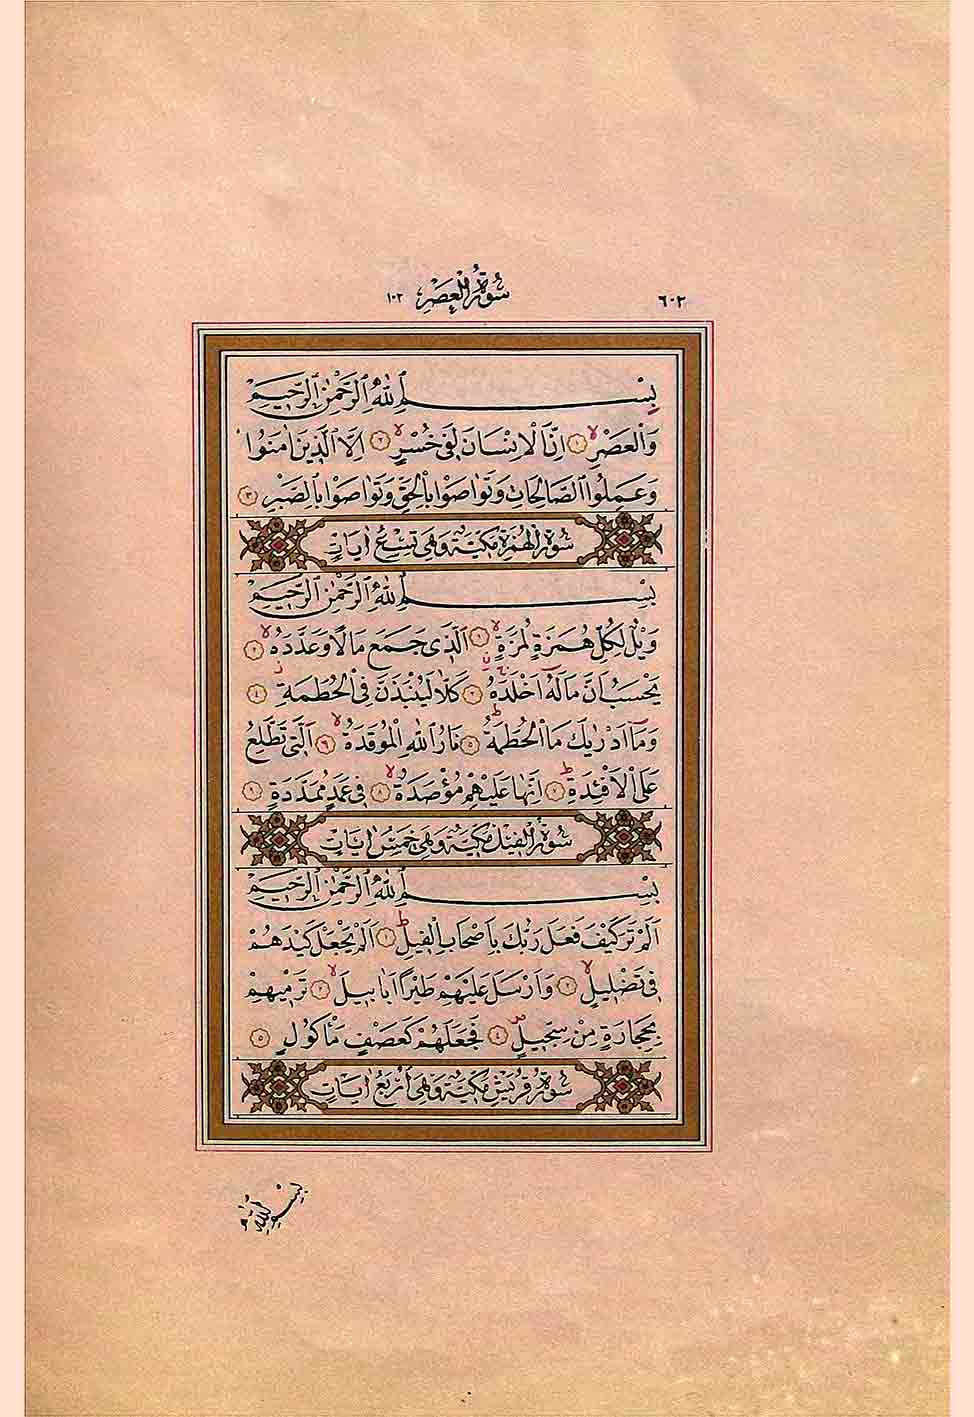 ٦٠٢ سُورَةُ الْعَصْرِ ١٠٣
بِسْمِ اللّٰهِ الرَّحْمٰنِ الرَّحِيمِ
وَالْعَصْرِۙ ﴿١﴾ اِنَّ الْاِنْسَانَ لَفِى خُسْرٍۙ ﴿٢﴾ اِلَّا الَّذِينَ اٰمَنُوا
وَعَمِلُوا الصَّالِحَاتِ وَتَوَاصَوْا بِالْحَقِّ وَتَوَاصَوْا بِالصَّبْرِ ﴿٣﴾
سُورَةُ الْهُمَزَةِ مَكِّيَّةٌ وَهِىَ تِسْعُ اٰيَاتٍ
بِسْمِ اللّٰهِ الرَّحْمٰنِ الرَّحِيمِ
وَيْلٌ لِكُلِّ هُمَزَةٍ لُمَزَةٍۙ ﴿١﴾ اَلَّذِى جَمَعَ مَالًا وَعَدَّدَهُۙ ﴿٢﴾
يَحْسَبُ اَنَّ مَالَهُٓ اَخْلَدَهُ ﴿٣﴾ كَلَّا لَيُنْبَذَنَّ فِى الْحُطَمَةِ ﴿٤﴾
وَمَٓا اَدْرٰيكَ مَا الْحُطَمَةُۜ ﴿٥﴾ نَارُ اللّٰهِ الْمُوقَدَةُۙ ﴿٦﴾ اَلَّتِى تَطَّلِعُ
عَلَى الْاَفْـِٔدَةِۜ ﴿٧﴾ اِنَّهَا عَلَيْهِمْ مُؤْصَدَةٌۙ ﴿٨﴾ فِى عَمَدٍ مُمَدَّدَةٍ ﴿٩﴾
سُورَةُ الْفِيلِ مَكِّيَّةٌ وَهِىَ خَمْسُ اٰيَاتٍ
بِسْمِ اللّٰهِ الرَّحْمٰنِ الرَّحِيمِ
اَلَمْ تَرَ كَيْفَ فَعَلَ رَبُّكَ بِاَصْحَابِ الْفِيلِۜ ﴿١﴾ اَلَمْ يَجْعَلْ كَيْدَهُمْ
فِى تَضْلِيلٍۙ ﴿٢﴾ وَاَرْسَلَ عَلَيْهِمْ طَيْرًا اَبَابِيلَۙ ﴿٣﴾ تَرْمِيهِمْ
بِحِجَارَةٍ مِنْ سِجِّيلٍ ﴿٤﴾ فَجَعَلَهُمْ كَعَصْفٍ مَأْكُولٍ ﴿٥﴾
سُورَةُ قُرَيْشٍ مَكِّيَّةٌ وَهِىَ اَرْبَعُ اٰيَاتٍ
بِسْمِ اللّٰهِ